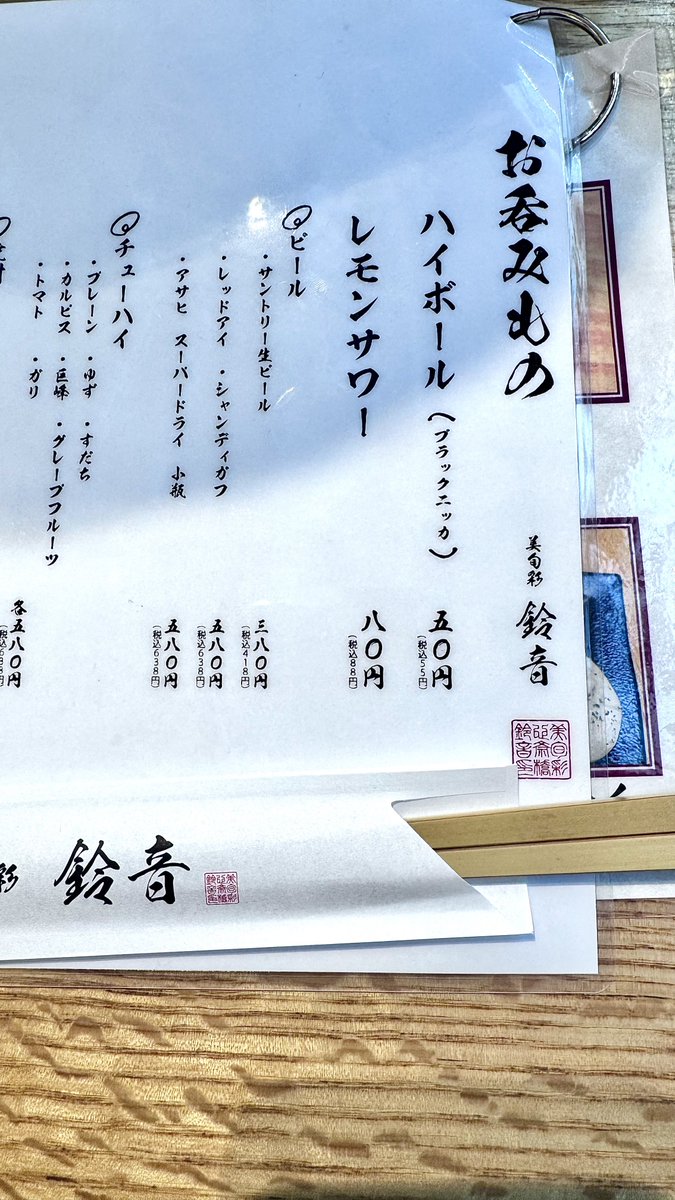 お呑みもの
美旬彩 鈴音
ハイボール（ブラックニッカ） 五〇円
（税込55円）
レモンサワー 八〇円
（税込88円）
◎ビール
・サントリー生ビール 三八〇円
（税込418円）
・レッドアイ ・シャンディガフ 五八〇円
（税込638円）
・アサヒ スーパードライ 小瓶 五八〇円
（税込638円）
◎チューハイ
・プレーン ・ゆず ・すだち
・カルピス ・巨峰 ・グレープフルーツ
・トマト ・ガリ 各五八〇円
彩 鈴音